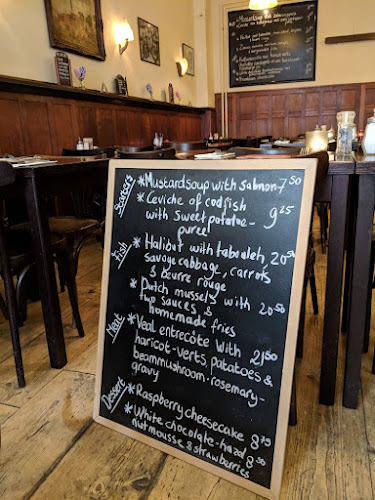 Starters
*Mustardsoup with Salmon 7 50
*Ceviche of codfish 9 25
with sweet potatoe-
puree
Fish
*Halibut with tabouleh, 20 50
Savoye cabbage, carrots
& beurre rouge
*Dutch mussels with 20 50
two sauces &
homemade fries
Meat
*Veal entrecôte with 21 50
haricot-verts, potatoes &
beammushroom, rosemary-
gravy
Dessert
*Raspberry cheesecake 8 75
*White chocolate-hazel 8 50
nut mousse & strawberries